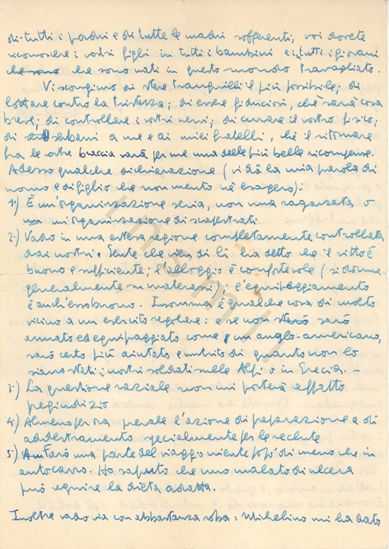 di tutti i padri e di tutte le madri sofferenti, voi dovete
riconoscere i vostri figli in tutti i bambini e in tutti i giovani
che sono che sono nati in questo mondo travagliato.
Vi scongiuro di stare tranquilli il più possibile; di
lottare contro la tristezza; di essere fiduciosi, che sarà cosa
breve; di controllare i vostri nervi; di curare il vostro fisico;
di serbarvi a me e ai miei fratelli, chè il ritornare
fra le vostre braccia sarà per me una delle più belle ricompense.
Adesso qualche dichiarazione (vi dò la mia parola di
uomo e di figlio che non mento nè esagero):
1) È un'organizzazione seria, non una ragazzata o
un'organizzazione di scapestrati.
2) Vado in una intera regione completamente controllata
dai nostri. Gente che vien di lì ha detto che il vitto è
buono e sufficiente; l'alloggio è confortevole (si dorme
generalmente su materassi); l'equipaggiamento
è anch'esso buono. Insomma è qualche cosa di molto
vicino a un esercito regolare: e se non sarò
armato ed equipaggiato come un anglo-americano,
sarò certo più aiutato e nutrito di quanto non lo
siano stati i nostri soldati nelle Alpi o in Grecia. -
3) La questione razziale non mi porterà affatto
pregiudizio
4) Almeno per ora prevale l'azione di preparazione e di
addestramento specialmente per le reclute
5) una parte del viaggio niente fo più di meno che in
autocarro. Ho saputo che uno malato di ulcera
può seguire la dieta adatta.
Inoltre vado via con abbastanza roba: Michelino mi ha dato